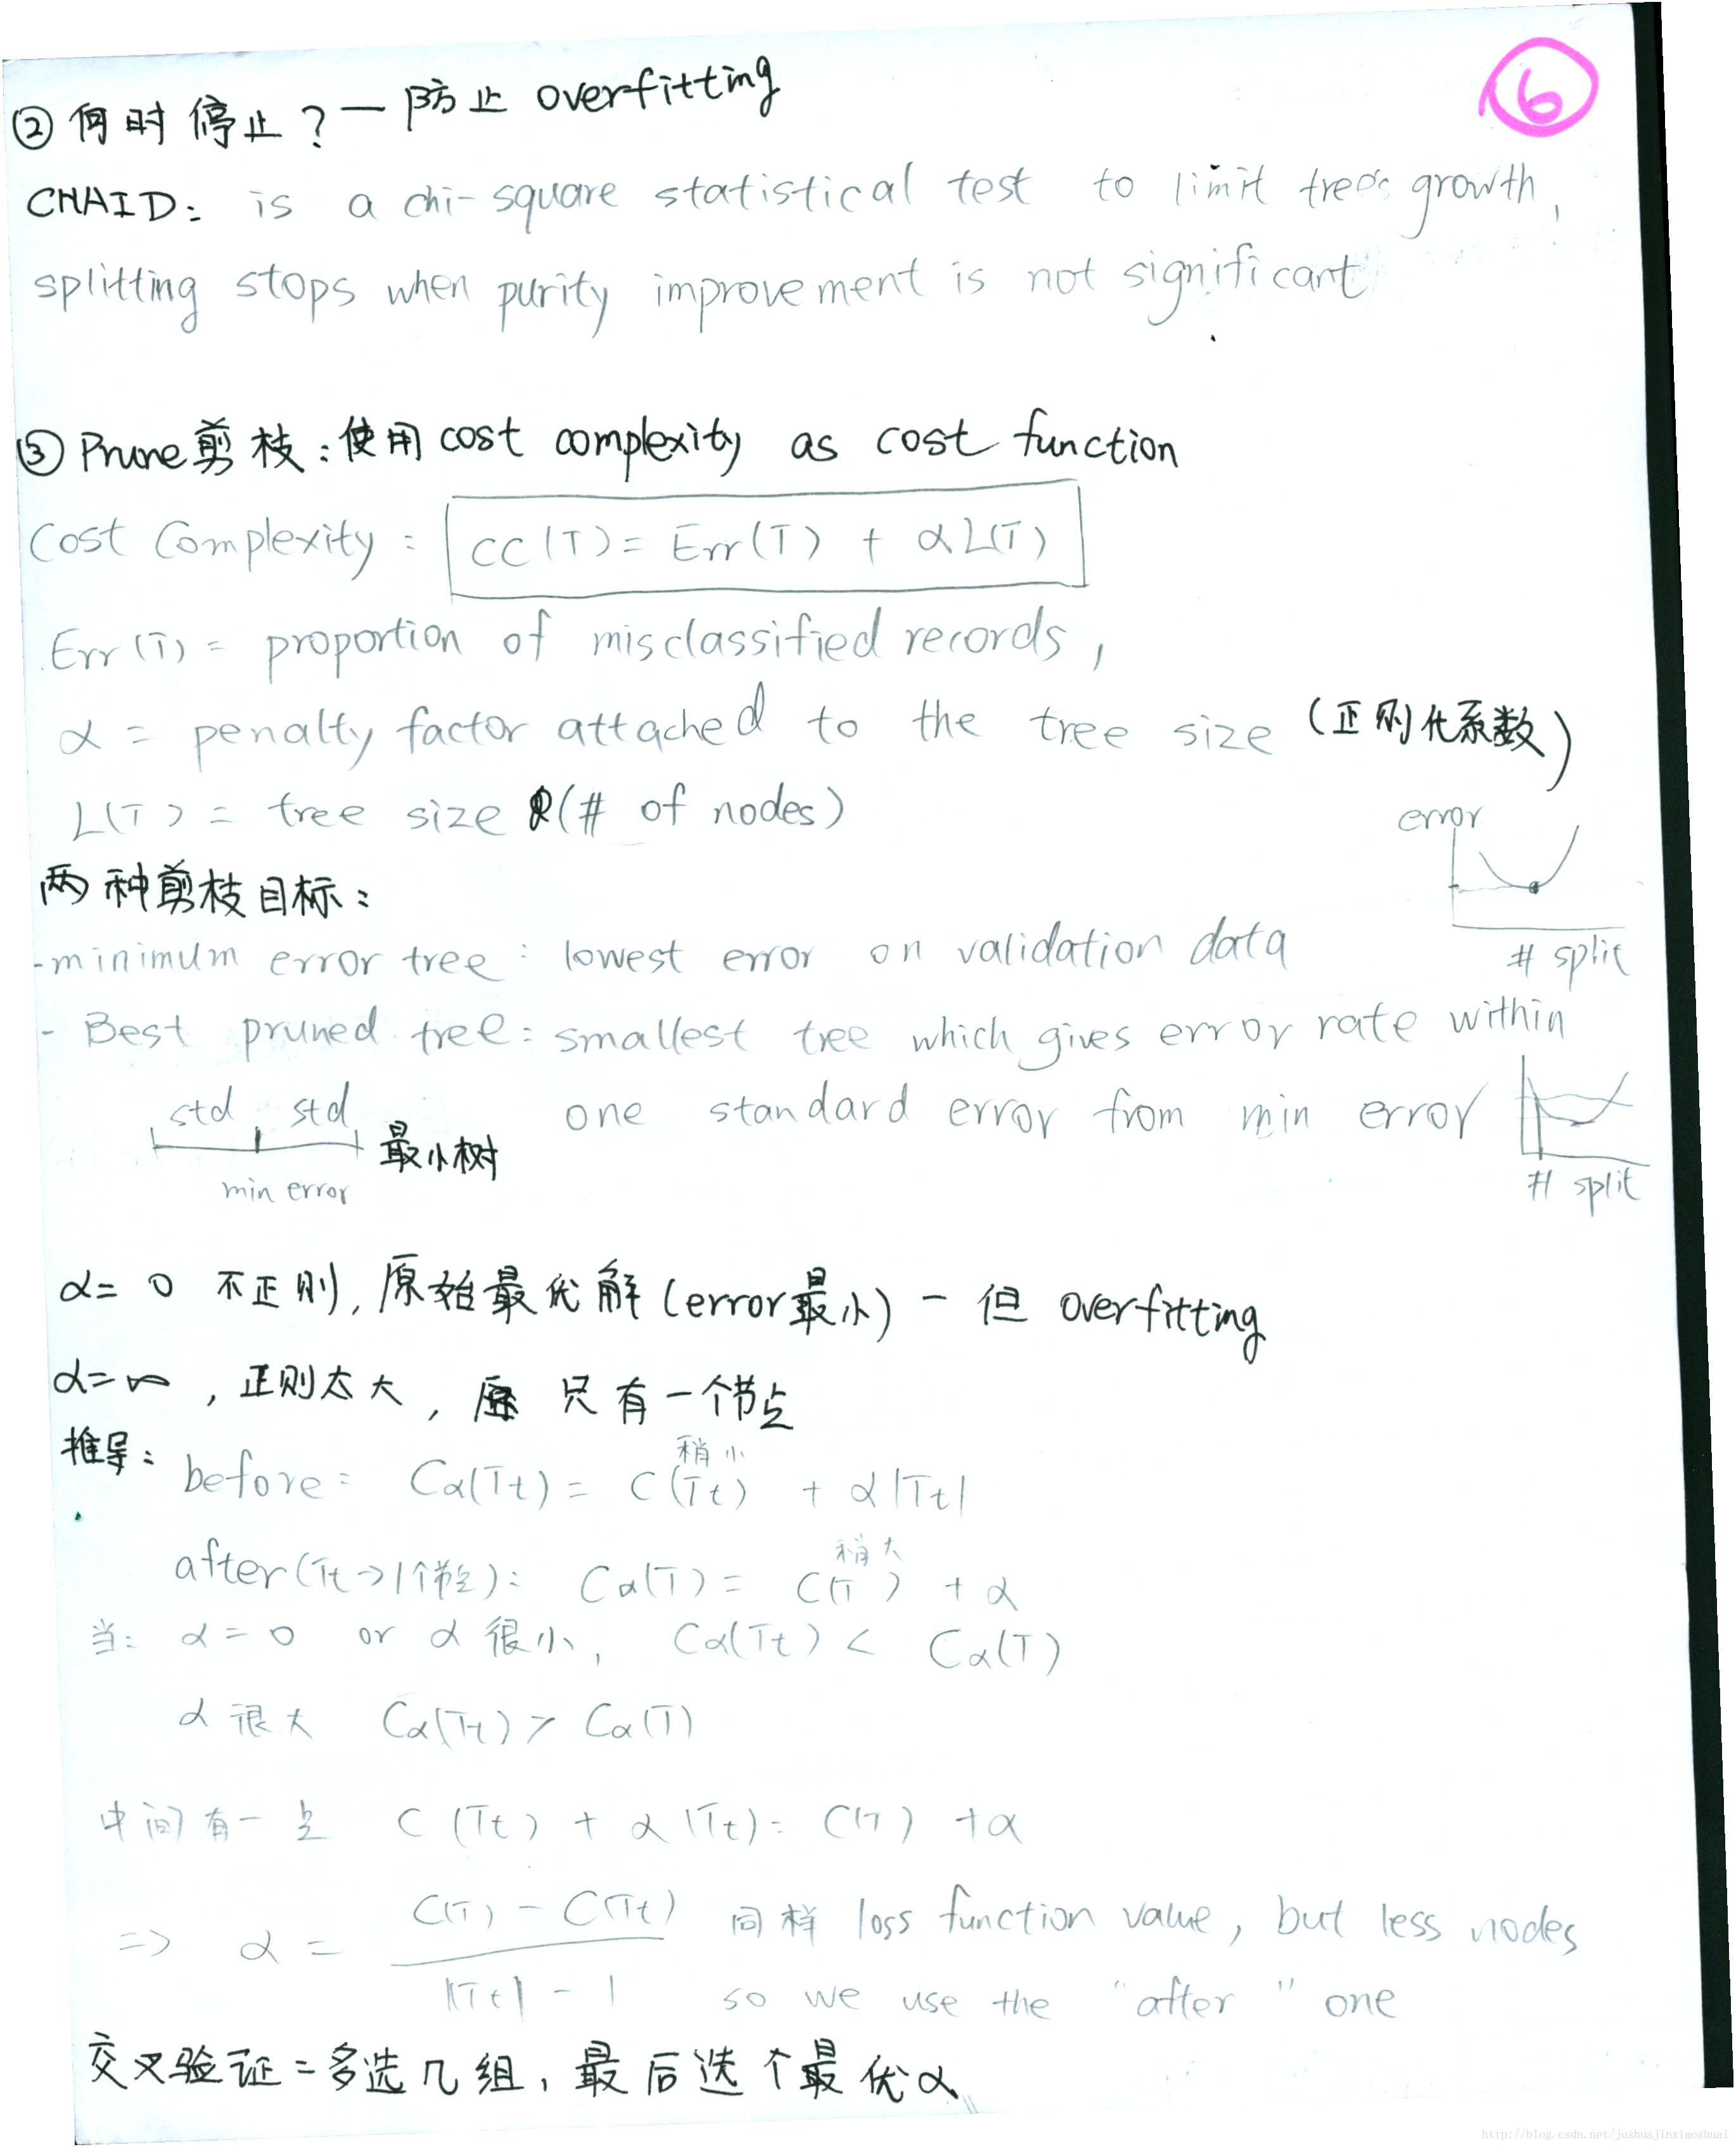 ⑥
② 何时停止？— 防止 overfitting
CHAID: is a chi-square statistical test to limit tree growth,
splitting stops when purity improvement is not significant
③ Prune剪枝：使用 cost complexity as cost function
Cost Complexity : CC(T) = Err(T) + αL(T)
Err(T) = proportion of misclassified records,
α = penalty factor attached to the tree size (正则化系数)
L(T) = tree size (# of nodes)
error
# split
两种剪枝目标：
-minimum error tree : lowest error on validation data
- Best pruned tree: smallest tree which gives error rate within
one standard error from min error
std std
最小树
min error
# split
α= 0 不正则, 原始最优解 (error最小) - 但 overfitting
α=∞, 正则太大, 只有一个节点
推导：
稍小
before: Cα(Tt) = C(Tt) + α|Tt|
稍大
after(Tt→1个节点): Cα(T) = C(T) + α
当: α = 0 or α 很小, Cα(Tt) < Cα(T)
α 很大 Cα(Tt) > Cα(T)
中间有一点 C(Tt) + α|Tt| = C(T) + α
=> α = C(T) - C(Tt) / |Tt| - 1 同样 loss function value, but less nodes
so we use the "after" one
交叉验证=多选几组, 最后选个最优α
http://blog.csdn.net/joshuajinxiaoshuai